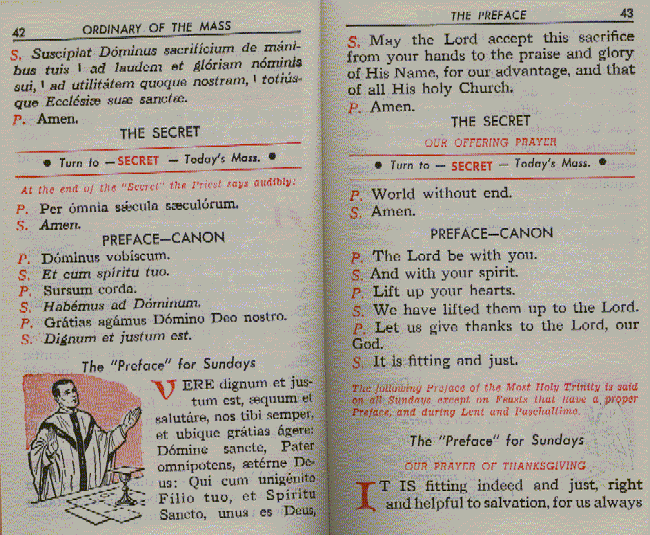 42 ORDINARY OF THE MASS
S. Suscipiat Dóminus sacrifícium de máni-
bus tuis ¹ ad laudem et glóriam nóminis
sui, ¹ ad utilitátem quoque nostram, ¹ totiús-
que Ecclésiæ suæ sanctæ.
P. Amen.
THE SECRET
● Turn to — SECRET — Today's Mass. ●
At the end of the "Secret" the Priest says audibly:
P. Per ómnia sǽcula sæculórum.
S. Amen.
PREFACE—CANON
P. Dóminus vobíscum.
S. Et cum spíritu tuo.
P. Sursum corda.
S. Habémus ad Dóminum.
P. Grátias agámus Dómino Deo nostro.
S. Dignum et justum est.
The "Preface" for Sundays
VERE dignum et jus-
tum est, æquum et
salutáre, nos tibi semper,
et ubique grátias ágere:
Dómine sancte, Pater
omnípotens, ætérne De-
us: Qui cum unigénito
Fílio tuo, et Spíritu
Sancto, unus es Deus,
THE PREFACE 43
S. May the Lord accept this sacrifice
from your hands to the praise and glory
of His Name, for our advantage, and that
of all His holy Church.
P. Amen.
THE SECRET
OUR OFFERING PRAYER
● Turn to — SECRET — Today's Mass. ●
P. World without end.
S. Amen.
PREFACE—CANON
P. The Lord be with you.
S. And with your spirit.
P. Lift up your hearts.
S. We have lifted them up to the Lord.
P. Let us give thanks to the Lord, our
God.
S. It is fitting and just.
The following Preface of the Most Holy Trinity is said
on all Sundays except on Feasts that have a proper
Preface, and during Lent and Paschaltime.
The "Preface" for Sundays
OUR PRAYER OF THANKSGIVING
IT IS fitting indeed and just, right
and helpful to salvation, for us always